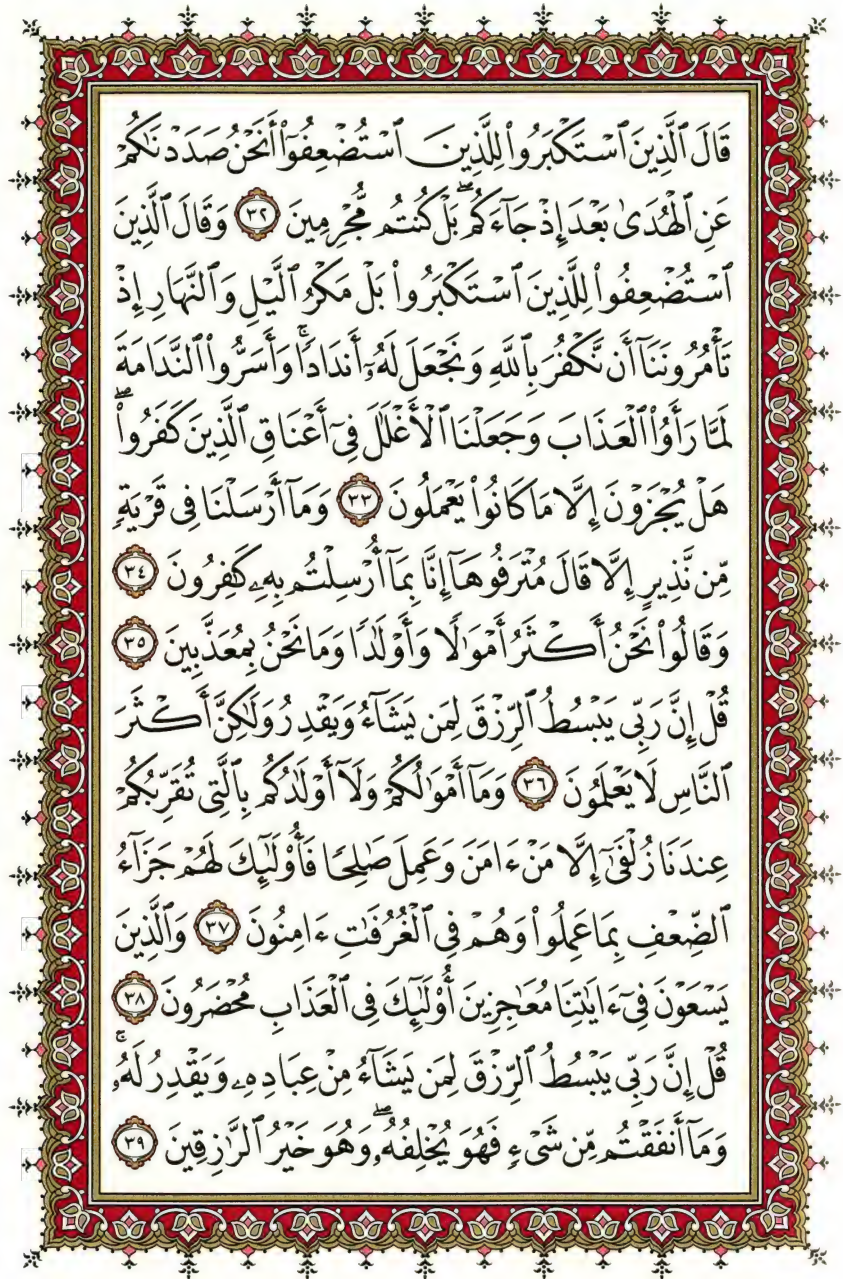 قَالَ ٱلَّذِينَ ٱسْتَكْبَرُوا۟ لِلَّذِينَ ٱسْتُضْعِفُوٓا۟ أَنَحْنُ صَدَدْنَٰكُمْ
عَنِ ٱلْهُدَىٰ بَعْدَ إِذْ جَآءَكُم ۖ بَلْ كُنتُم مُّجْرِمِينَ ٣٢ وَقَالَ ٱلَّذِينَ
ٱسْتُضْعِفُوا۟ لِلَّذِينَ ٱسْتَكْبَرُوا۟ بَلْ مَكْرُ ٱلَّيْلِ وَٱلنَّهَارِ إِذْ
تَأْمُرُونَنَآ أَن نَّكْفُرَ بِٱللَّهِ وَنَجْعَلَ لَهُۥٓ أَندَادًا ۚ وَأَسَرُّوا۟ ٱلنَّدَامَةَ
لَمَّا رَأَوُا۟ ٱلْعَذَابَ وَجَعَلْنَا ٱلْأَغْلَٰلَ فِىٓ أَعْنَاقِ ٱلَّذِينَ كَفَرُوا۟ ۖ
هَلْ يُجْزَوْنَ إِلَّا مَا كَانُوا۟ يَعْمَلُونَ ٣٣ وَمَآ أَرْسَلْنَا فِى قَرْيَةٍ
مِّن نَّذِيرٍ إِلَّا قَالَ مُتْرَفُوهَآ إِنَّا بِمَآ أُرْسِلْتُم بِهِۦ كَٰفِرُونَ ٣٤
وَقَالُوا۟ نَحْنُ أَكْثَرُ أَمْوَٰلًا وَأَوْلَٰدًا وَمَا نَحْنُ بِمُعَذَّبِينَ ٣٥
قُلْ إِنَّ رَبِّى يَبْسُطُ ٱلرِّزْقَ لِمَن يَشَآءُ وَيَقْدِرُ وَلَٰكِنَّ أَكْثَرَ
ٱلنَّاسِ لَا يَعْلَمُونَ ٣٦ وَمَآ أَمْوَٰلُكُمْ وَلَآ أَوْلَٰدُكُم بِٱلَّتِى تُقَرِّبُكُمْ
عِندَنَا زُلْفَىٰٓ إِلَّا مَنْ ءَامَنَ وَعَمِلَ صَٰلِحًا فَأُو۟لَٰٓئِكَ لَهُمْ جَزَآءُ
ٱلضِّعْفِ بِمَا عَمِلُوا۟ وَهُمْ فِى ٱلْغُرُفَٰتِ ءَامِنُونَ ٣٧ وَٱلَّذِينَ
يَسْعَوْنَ فِىٓ ءَايَٰتِنَا مُعَٰجِزِينَ أُو۟لَٰٓئِكَ فِى ٱلْعَذَابِ مُحْضَرُونَ ٣٨
قُلْ إِنَّ رَبِّى يَبْسُطُ ٱلرِّزْقَ لِمَن يَشَآءُ مِنْ عِبَادِهِۦ وَيَقْدِرُ لَهُۥ ۚ
وَمَآ أَنفَقْتُم مِّن شَىْءٍ فَهُوَ يُخْلِفُهُۥ ۖ وَهُوَ خَيْرُ ٱلرَّٰزِقِينَ ٣٩